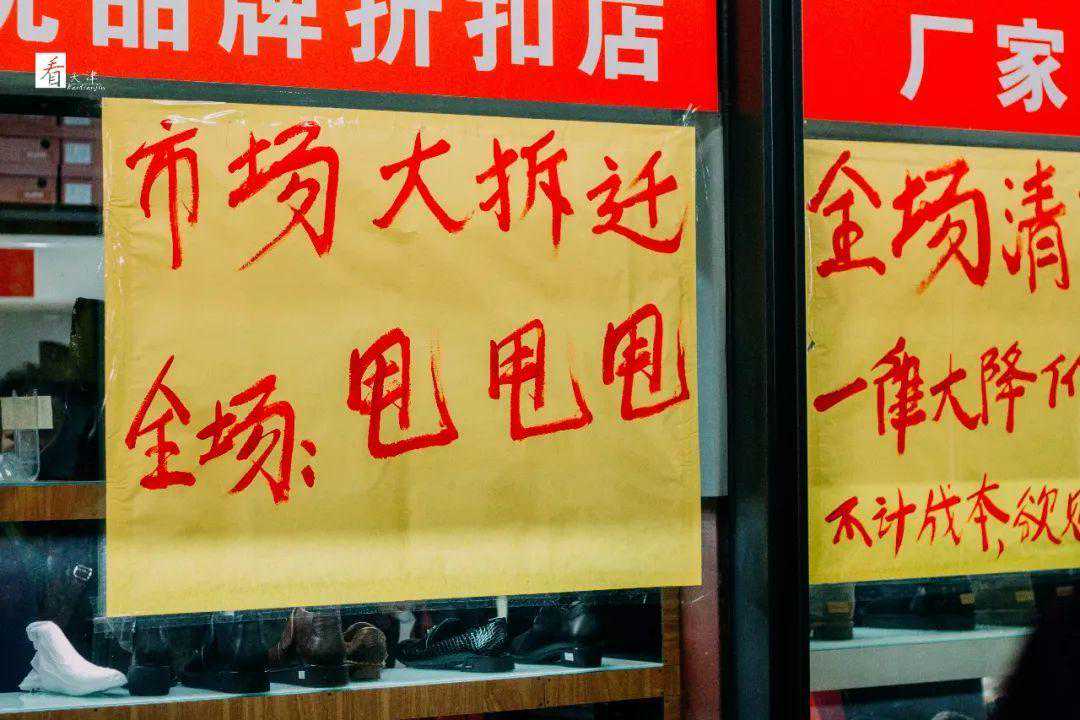 品牌折扣店
厂家
看天津
Kantianjin
市场大拆迁
全场：甩甩甩
全场清
一律大降价
不计成本,欲